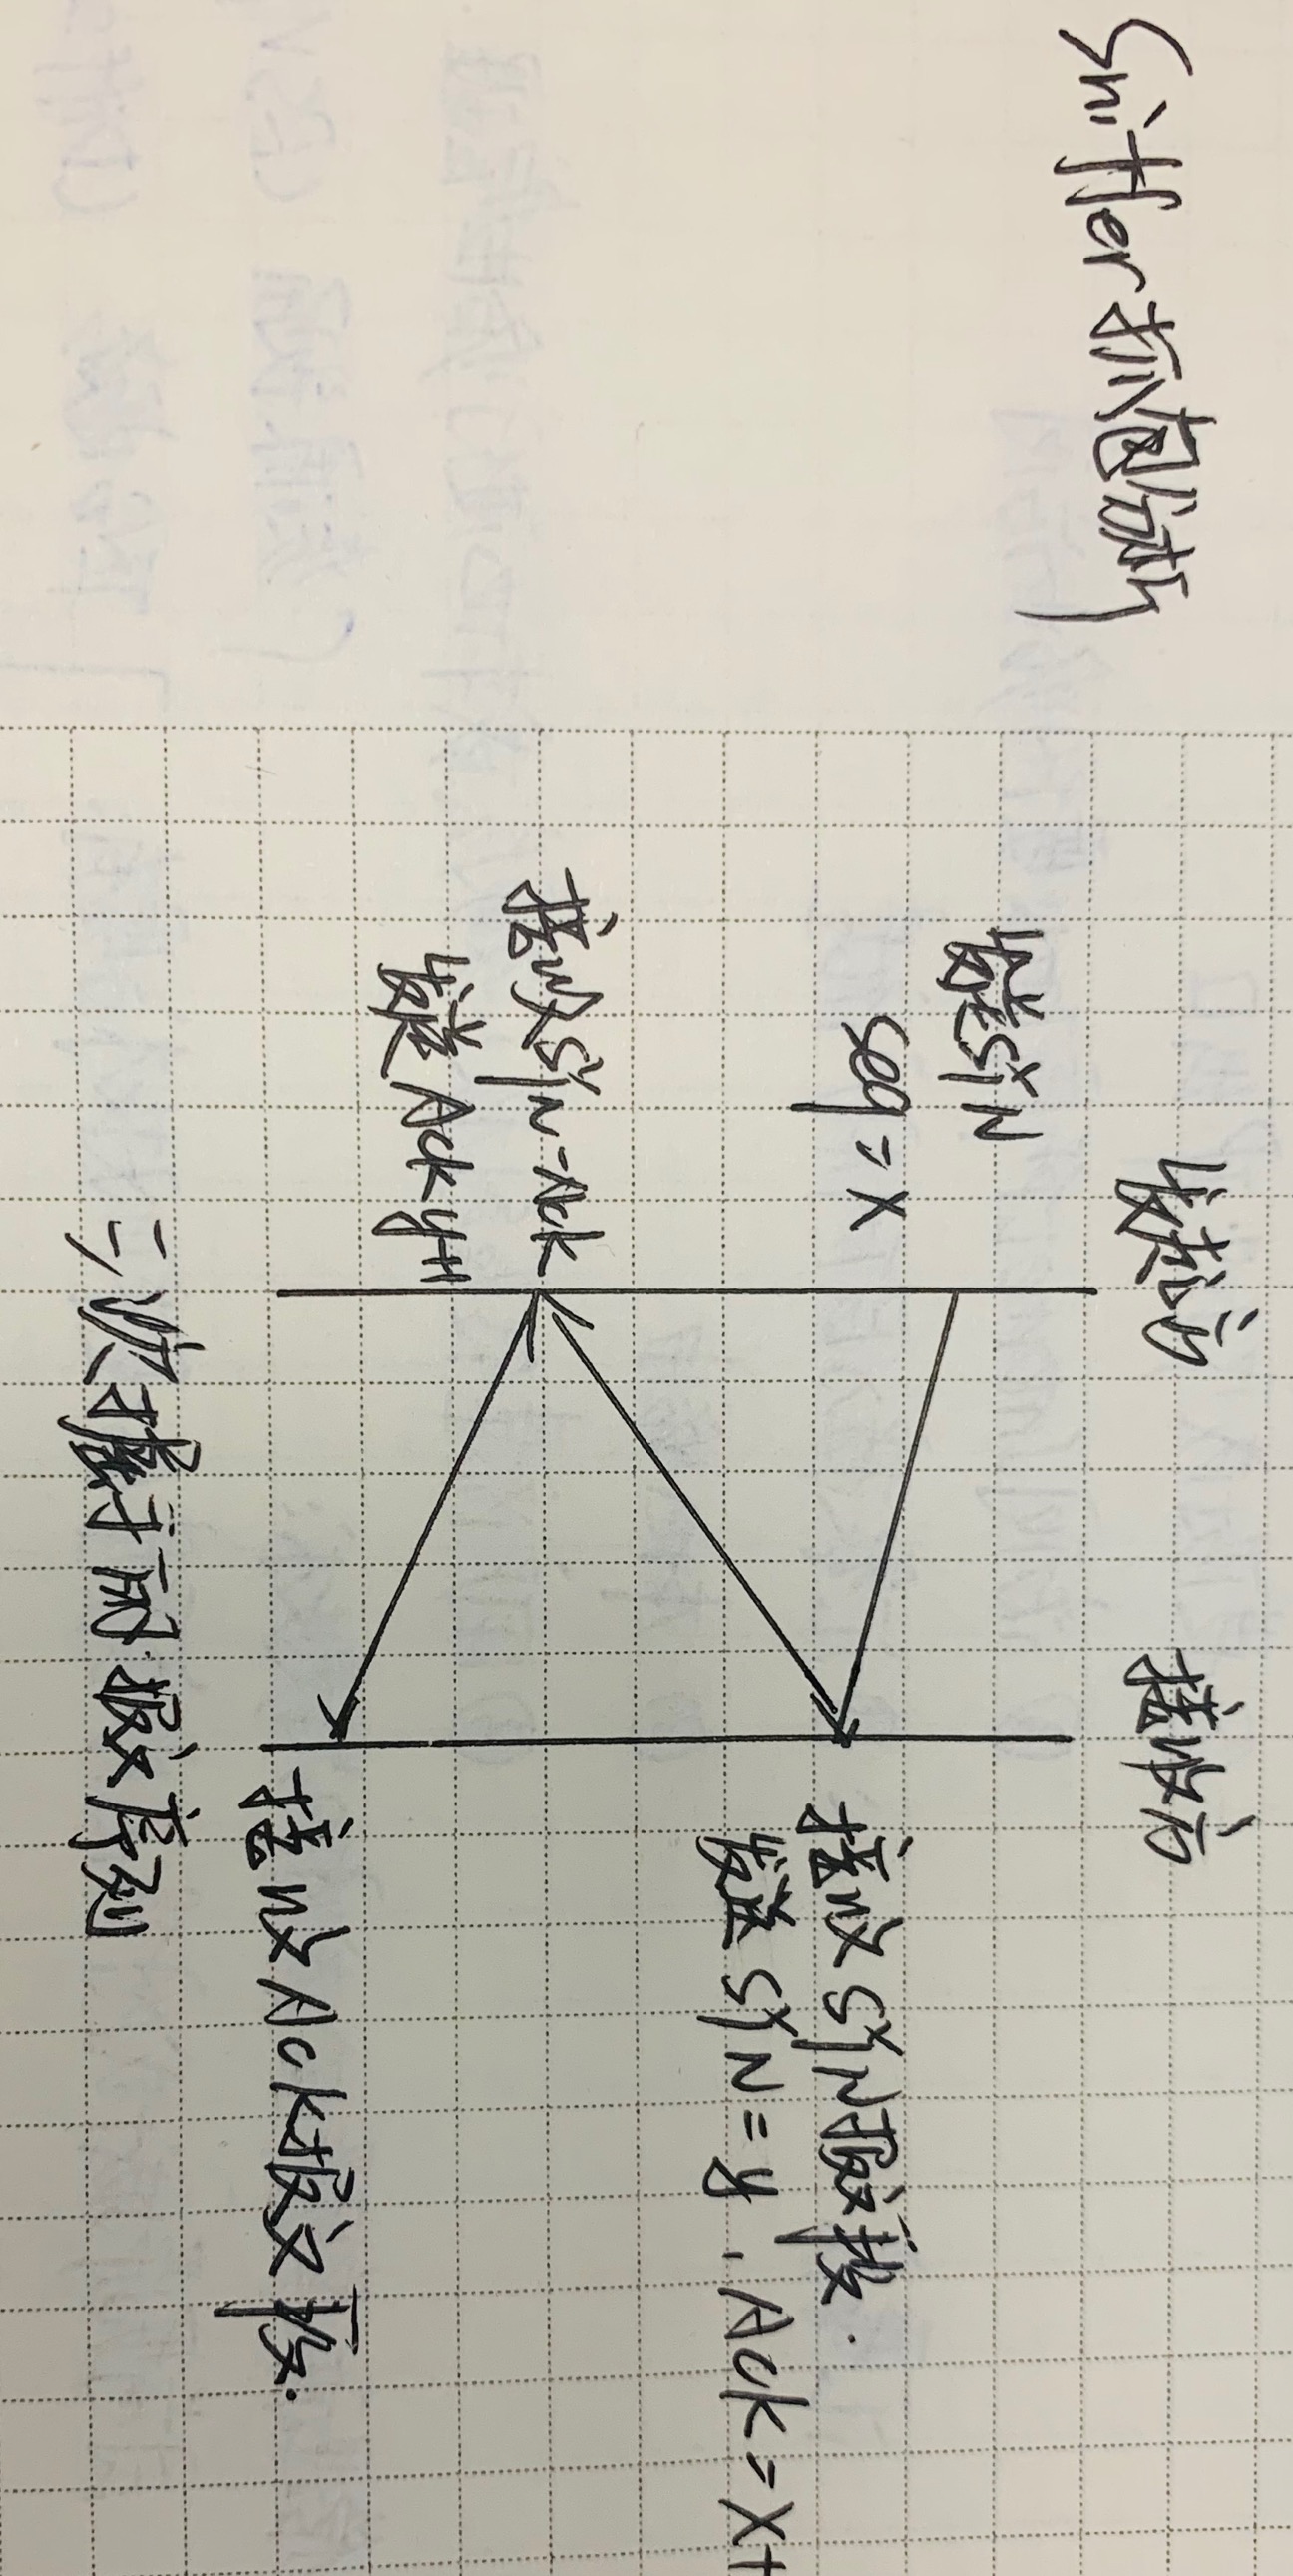 Sniffer抓包分析
发起方 接收方
发送SYN
seq=x
接收SYN报文段.
发送SYN=y,Ack=x+
接收SYN-Ack
发送Ack y+1
接收Ack报文段.
三次握手的报文序列